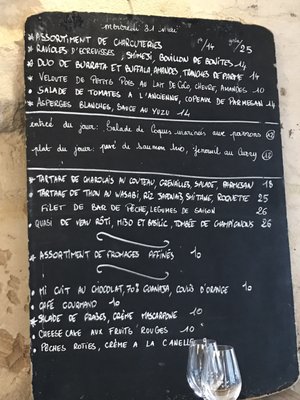 mercredi 31 mai
* ASSORTIMENT DE CHARCUTERIES /14 /25
* RAVIOLES D'ECREVISSES, SHIMEJI, BOUILLON DE BONITES 14
* DUO DE BURRATA ET BUFFALA, AMANDES, TRANCHES DE PARME 14
* VELOUTE DE PETITS POIS AU LAIT DE COCO, CHEVRE, AMANDES 10
• SALADE DE TOMATES A L'ANCIENNE, COPEAUX DE PARMESAN 14
* ASPERGES BLANCHES, SAUCE AU YUZU 14
entrée du jour: Salade de Coques marinées aux poivrons
plat du jour: pavé de saumon bio, fenouil au Curry
* TARTARE DE CHAROLAIS AU COUTEAU, GRENAILLES, SALADE, PARMESAN 18
TARTARE DE THON AU WASABI, RIZ SAFRANÉ, SHITAKE, ROQUETTE 25
FILET DE BAR DE PÊCHE, LEGUMES DE SAISON 26
• QUASI DE VEAU RÔTI, MISO ET BASILIC, TOMBÉE DE CHAMPIGNONS 26
* ASSORTIMENT DE FROMAGES AFFINÉS 10
• MI CUIT AU CHOCOLAT, 70% GUANAJA, COULIS D'ORANGE 10
• CAFÉ GOURMAND 10
* SALADE DE FRAISES, CRÈME MASCARPONE 10
• CHEESE CAKE AUX FRUITS ROUGES 10
• PÊCHES ROTIES, CRÈME A LA CANELLE